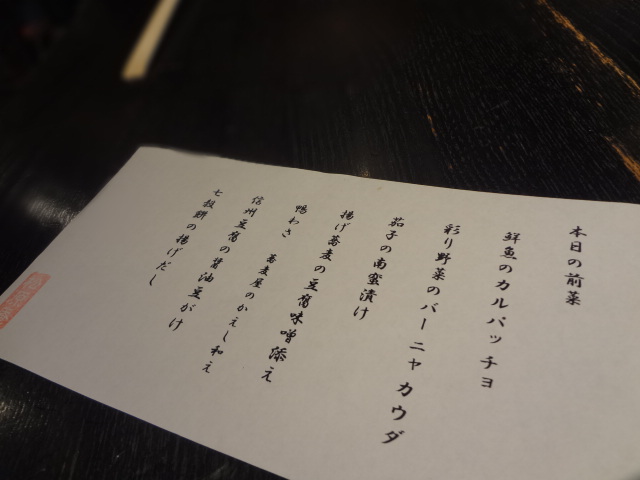 本日の前菜
鮮魚のカルパッチョ
彩り野菜のバーニャカウダ
茄子の南蛮漬け
揚げ蕎麦の豆腐味噌添え
鴨わさ 蕎麦屋のかえし和え
信州豆腐の醤油豆がけ
七穀餅の揚げだし